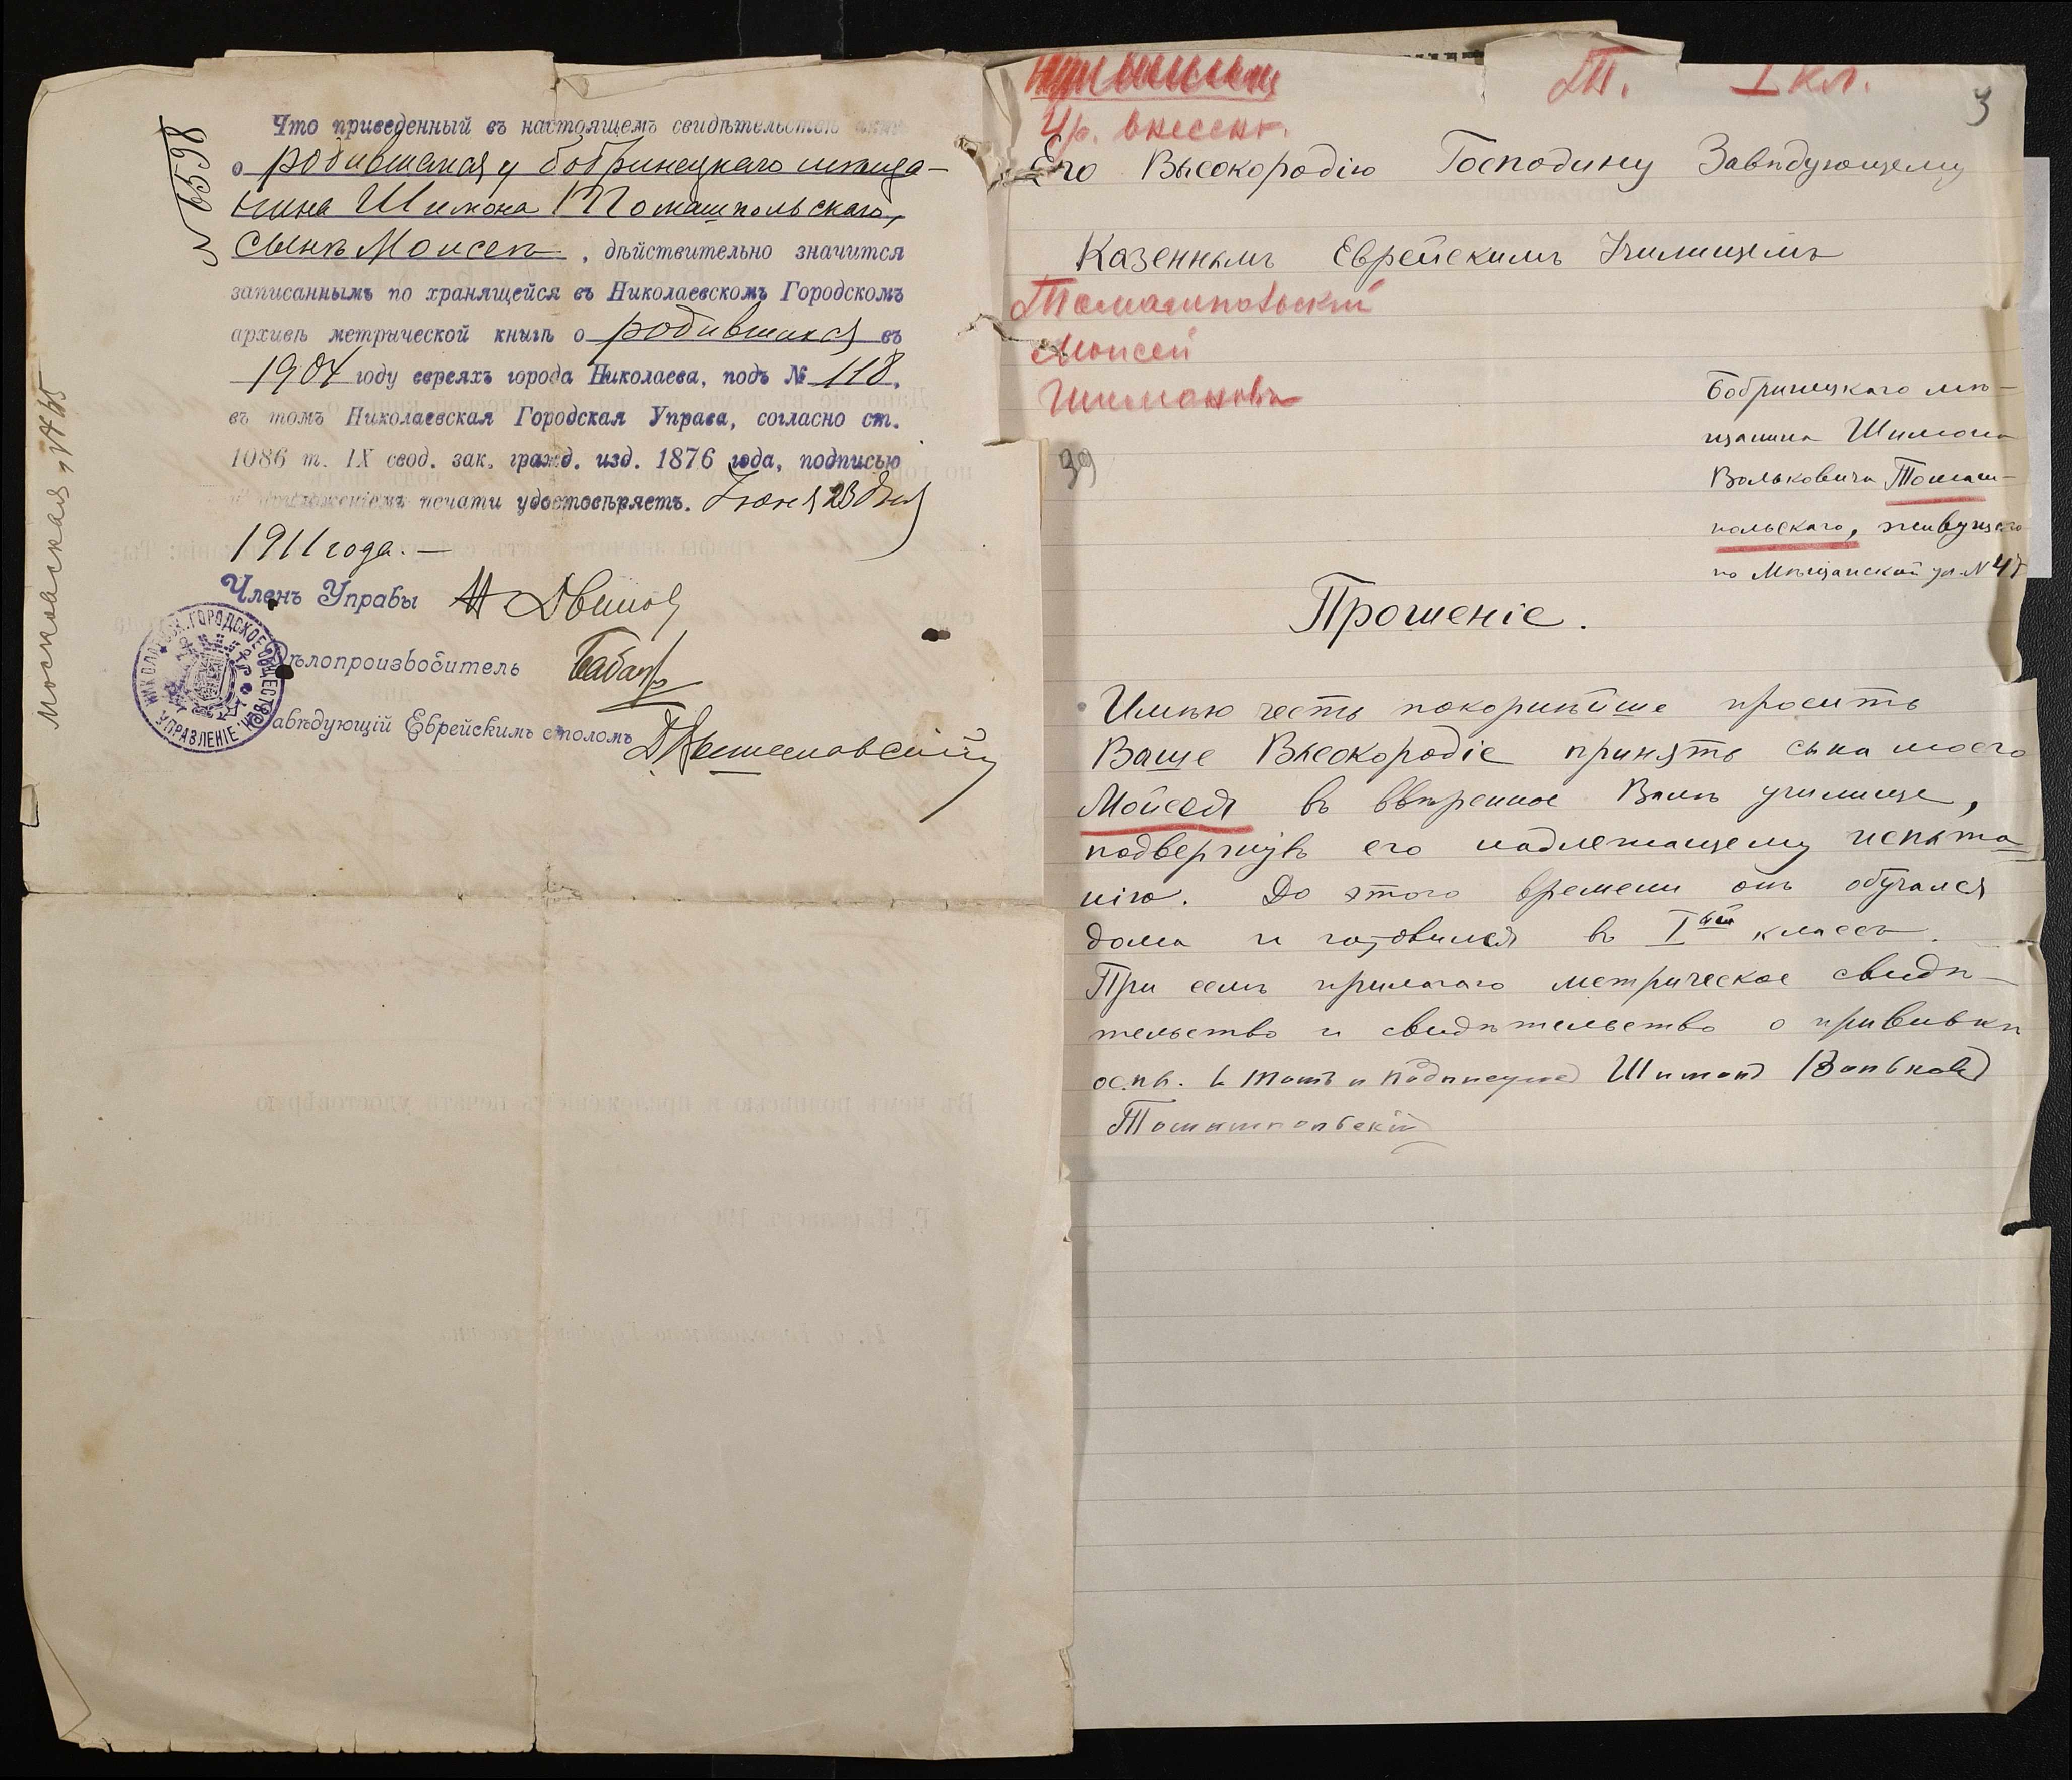 Что приведенный въ настоящемъ свидѣтельствѣ актъ
о родившемся у бобринецкаго мѣща-
нина Шимона Томашпольскаго,
сынѣ Моисеѣ, дѣйствительно значится
записаннымъ по хранящейся въ Николаевскомъ Городскомъ
архивѣ метрической книгѣ о родившихся въ
1904 году евреяхъ города Николаева, подъ № 118,
въ томъ Николаевская Городская Управа, согласно ст.
1086 т. IX свод. зак. гражд. изд. 1876 года, подписью
и приложеніемъ печати удостовѣряетъ. Іюня 23 дня
1911 года. —
Членъ Управы
Дѣлопроизводитель
Завѣдующій Еврейскимъ столомъ
НИКОЛАЕВСК. ГОРОДСКОЕ ОБЩЕСТВЕН. УПРАВЛЕНІЕ
№ 6598
Московская, №65
Т. I кл.
3
Ур. внесенъ.
Его Высокородію Господину Завѣдующему
Казеннымъ Еврейскимъ Училищемъ
Томашпольскій
Моисей
Шимоновъ
39
Бобринецкаго мѣ-
щанина Шимона
Вольковича Томаш-
польскаго, живущаго
по Мѣщанской ул. № 47
Прошеніе.
Имѣю честь покорнѣйше просить
Ваше Высокородіе принять сына моего
Мойсея въ ввѣренное Вамъ училище,
подвергнувъ его надлежащему испыта-
нію. До этого времени онъ обучался
дома и готовился въ I-ый классъ.
При семъ прилагаю метрическое свидѣ-
тельство и свидѣтельство о прививкѣ
оспы. Въ томъ и подписуюсь Шимонъ Вольковъ
Томашпольскій